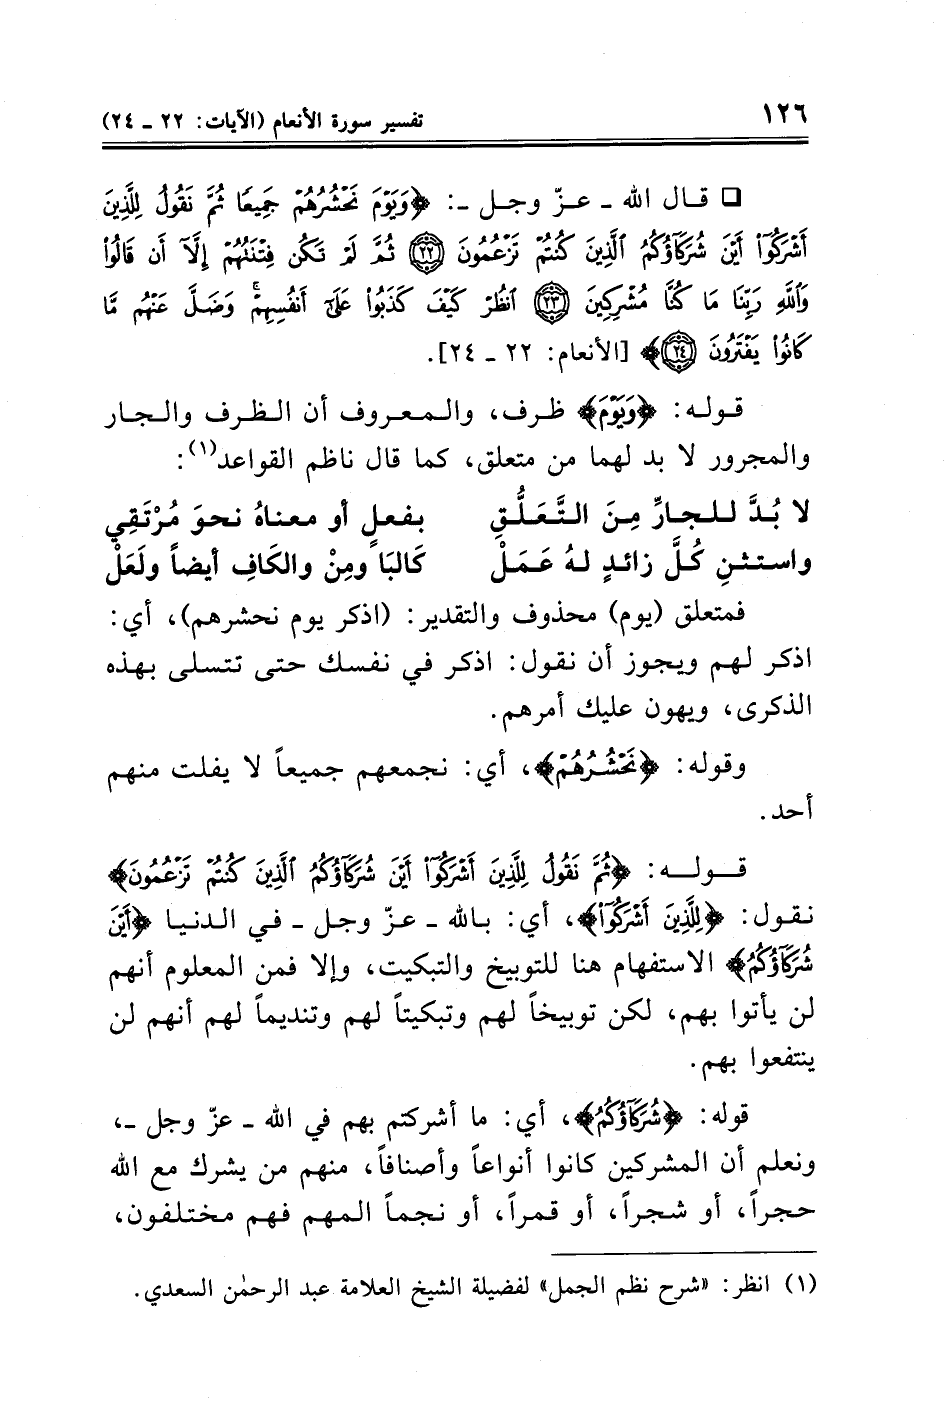 ١٢٦ تفسير سورة الأنعام (الآيات: ٢٢ ـ ٢٤)
❑ قال الله ـ عزّ وجل ـ: ﴿وَيَوْمَ نَحْشُرُهُمْ جَمِيعًا ثُمَّ نَقُولُ لِلَّذِينَ
أَشْرَكُوٓا۟ أَيْنَ شُرَكَآؤُكُمُ ٱلَّذِينَ كُنتُمْ تَزْعُمُونَ ﴿٢٢﴾ ثُمَّ لَمْ تَكُن فِتْنَتُهُمْ إِلَّآ أَن قَالُوا۟
وَٱللَّهِ رَبِّنَا مَا كُنَّا مُشْرِكِينَ ﴿٢٣﴾ ٱنظُرْ كَيْفَ كَذَبُوا۟ عَلَىٰٓ أَنفُسِهِمْ ۚ وَضَلَّ عَنْهُم مَّا
كَانُوا۟ يَفْتَرُونَ ﴿٢٤﴾﴾ [الأنعام: ٢٢ ـ ٢٤].
قوله: ﴿وَيَوْمَ﴾ ظرف، والمعروف أن الظرف والجار
والمجرور لا بد لهما من متعلق، كما قال ناظم القواعد(١):
لا بُدَّ للجارِّ مِنَ التَّعَلُّقِ بفعلٍ أو معناهُ نحوَ مُرْتَقِي
واستثنِ كُلَّ زائدٍ لهُ عَمَلْ كَالبَا ومِنْ والكَافِ أيضاً ولَعَلْ
فمتعلق (يوم) محذوف والتقدير: (اذكر يوم نحشرهم)، أي:
اذكر لهم ويجوز أن نقول: اذكر في نفسك حتى تتسلى بهذه
الذكرى، ويهون عليك أمرهم.
وقوله: ﴿نَحْشُرُهُمْ﴾، أي: نجمعهم جميعاً لا يفلت منهم
أحد.
قوله: ﴿ثُمَّ نَقُولُ لِلَّذِينَ أَشْرَكُوٓا۟ أَيْنَ شُرَكَآؤُكُمُ ٱلَّذِينَ كُنتُمْ تَزْعُمُونَ﴾
نقول: ﴿لِلَّذِينَ أَشْرَكُوٓا۟﴾، أي: بالله ـ عزّ وجل ـ في الدنيا ﴿أَيْنَ
شُرَكَآؤُكُمُ﴾ الاستفهام هنا للتوبيخ والتبكيت، وإلا فمن المعلوم أنهم
لن يأتوا بهم، لكن توبيخاً لهم وتبكيتاً لهم وتنديماً لهم أنهم لن
ينتفعوا بهم.
قوله: ﴿شُرَكَآؤُكُمُ﴾، أي: ما أشركتم بهم في الله ـ عزّ وجل ـ،
ونعلم أن المشركين كانوا أنواعاً وأصنافاً، منهم من يشرك مع الله
حجراً، أو شجراً، أو قمراً، أو نجماً المهم فهم مختلفون،
(١) انظر: «شرح نظم الجمل» لفضيلة الشيخ العلامة عبد الرحمٰن السعدي.